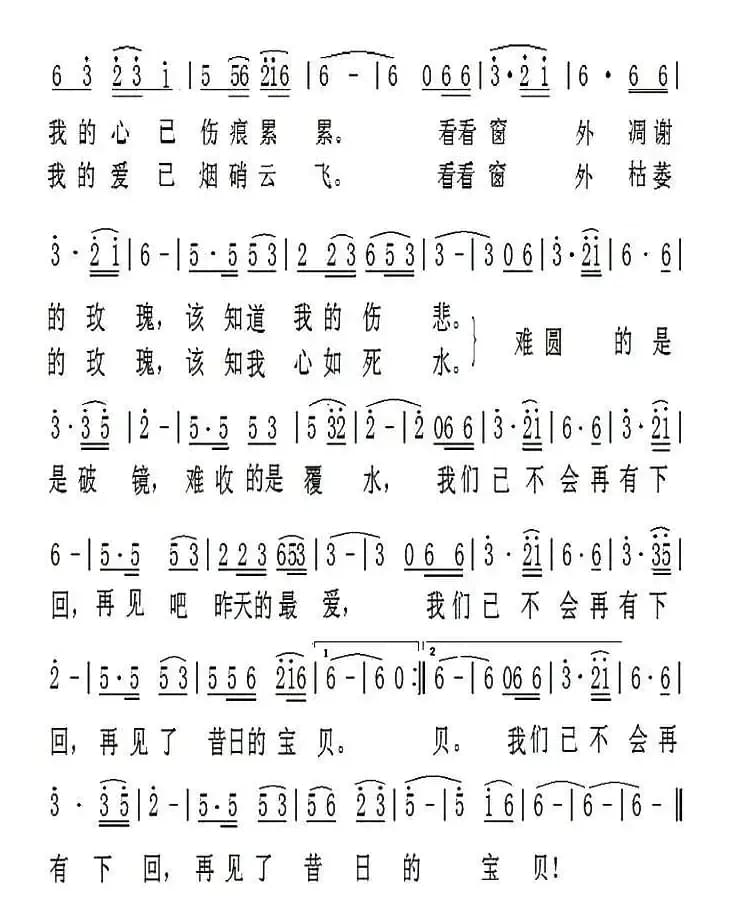 6 3 2 3 i | 5 56 2i6 | 6 - | 6 066 | 3·2i | 6· 66 |
我的心已伤痕累累。看看窗外凋谢
我的爱已烟硝云飞。看看窗外枯萎
3·2i | 6 - | 5·5 53 | 2 23 6 53 | 3 - | 3 06 | 3·2i | 6·6 |
的玫瑰,该知道我的伤悲。
的玫瑰,该知我心如死水。} 难圆的是
3·35 | 2 - | 5·5 53 | 5 32 | 2 - | 2 066 | 3·2i | 6·6 | 3·2i |
是破镜,难收的是覆水,我们已不会再有下
6 - | 5·5 53 | 223 653 | 3 - | 3 06 6 | 3·2i | 6·6 | 3·35 |
回,再见吧昨天的最爱,我们已不会再有下
1 2
2 - | 5·5 53 | 556 2i6 | 6 - | 6 0 :‖ 6 - | 6 066 | 3·2i | 6·6 |
回,再见了昔日的宝贝。贝。我们已不会再
3·35 | 2 - | 5·5 53 | 56 23 | 5 - | 5 i6 | 6 - | 6 - ‖
有下回,再见了昔日的宝贝!